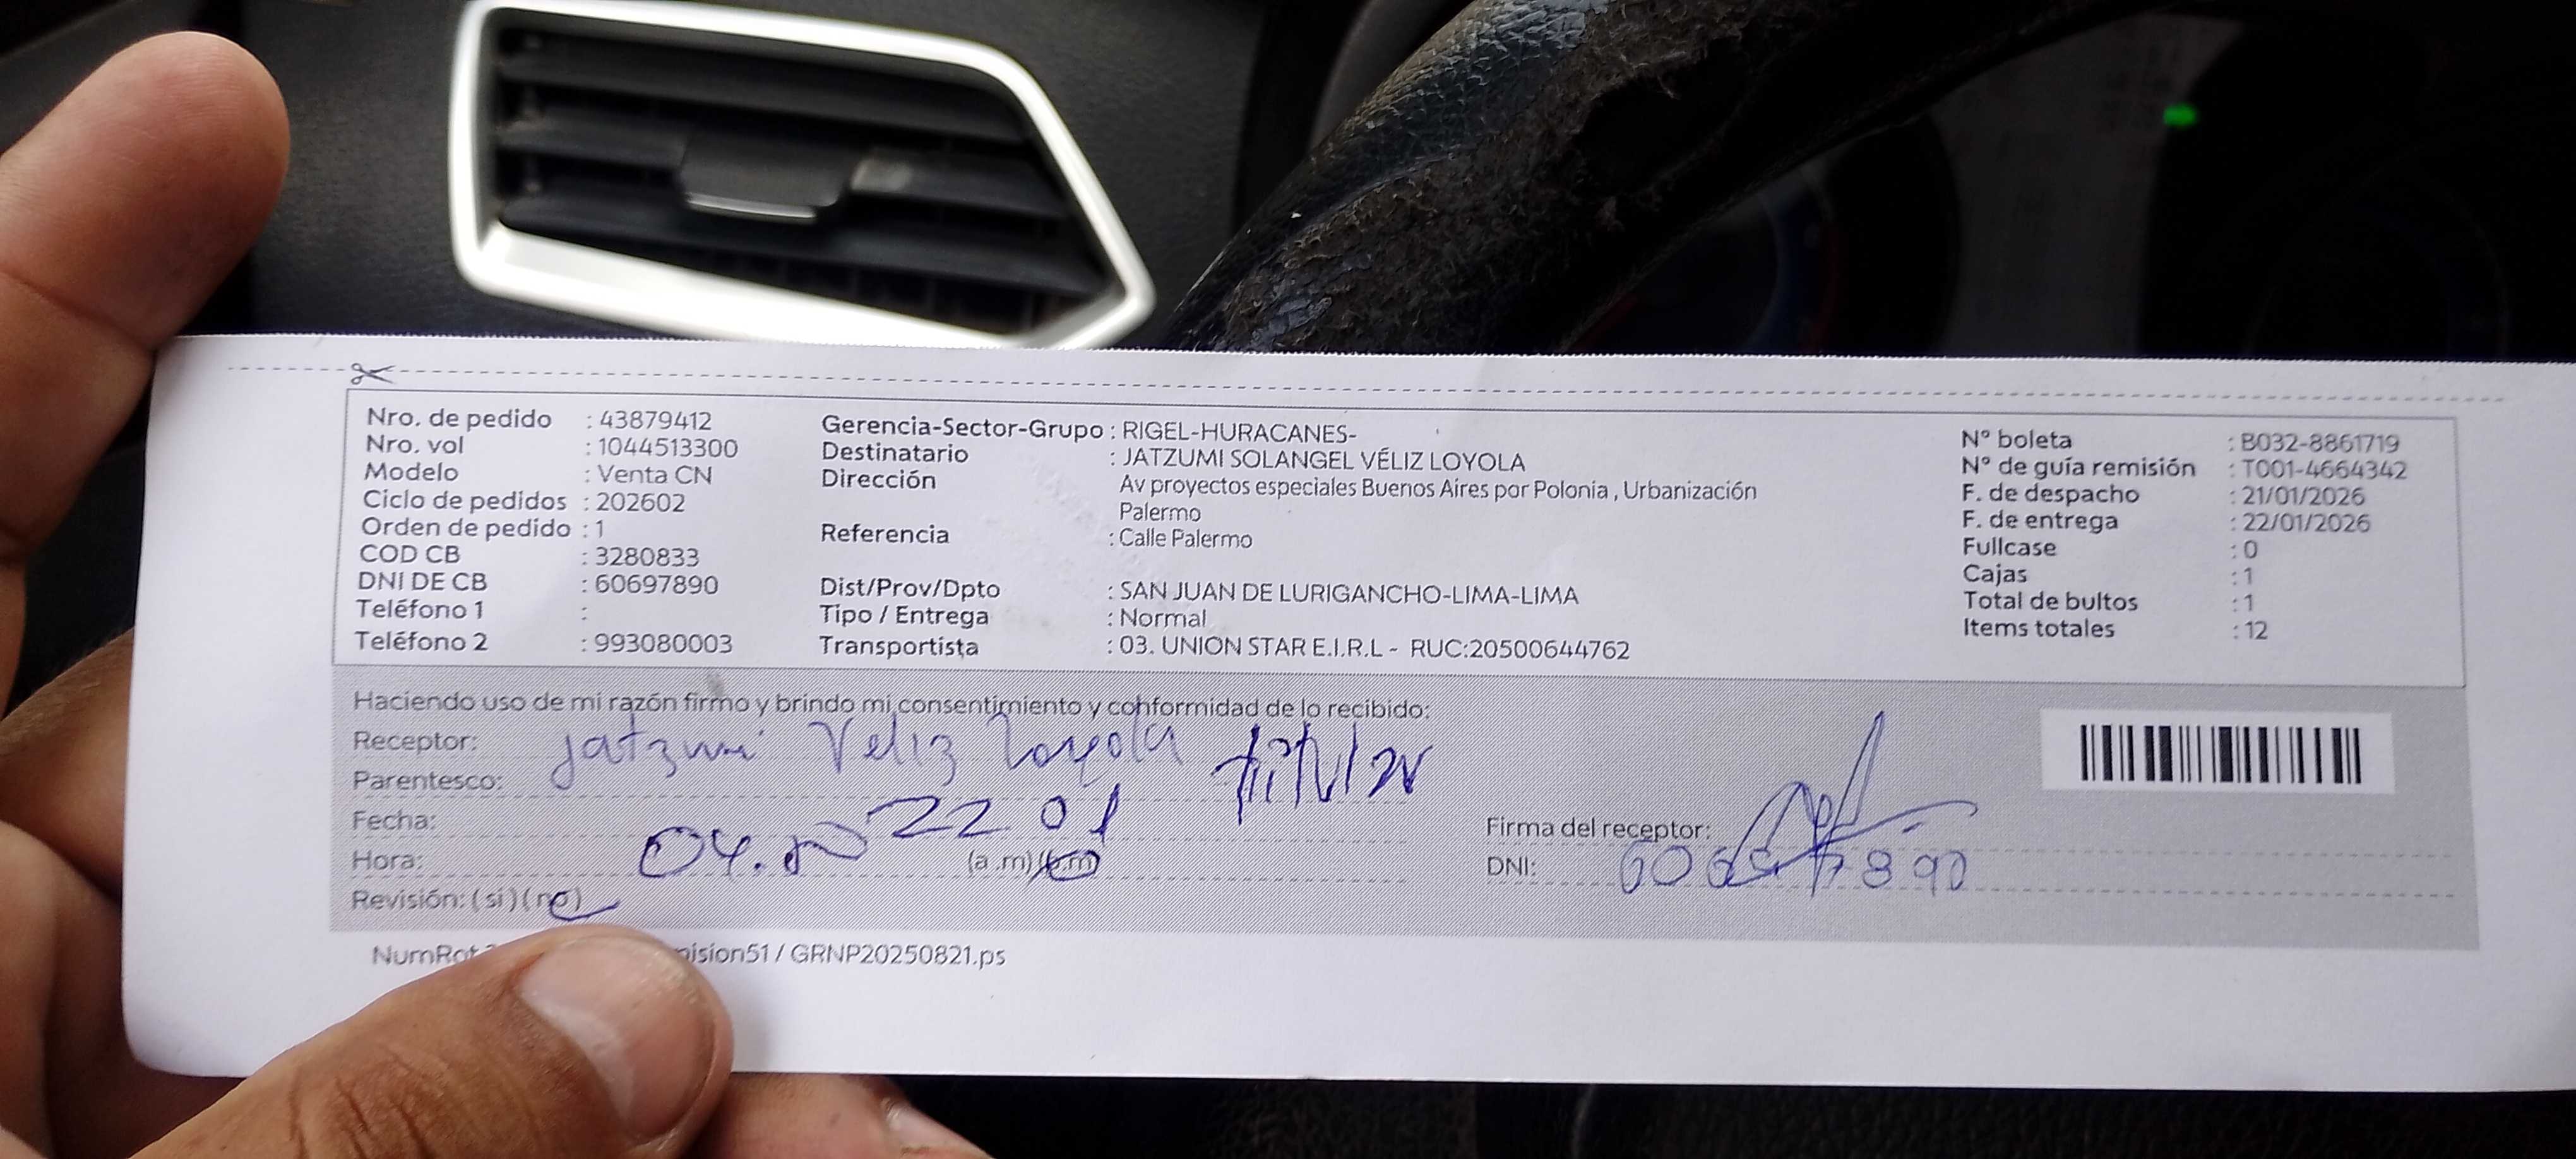 Nro. de pedido : 43879412
Nro. vol : 1044513300
Modelo : Venta CN
Ciclo de pedidos : 202602
Orden de pedido : 1
COD CB : 3280833
DNI DE CB : 60697890
Teléfono 1 :
Teléfono 2 : 993080003
Gerencia-Sector-Grupo : RIGEL-HURACANES-
Destinatario : JATZUMI SOLANGEL VÉLIZ LOYOLA
Dirección Av proyectos especiales Buenos Aires por Polonia , Urbanización
Palermo
Referencia : Calle Palermo
Dist/Prov/Dpto : SAN JUAN DE LURIGANCHO-LIMA-LIMA
Tipo / Entrega : Normal
Transportista : 03. UNION STAR E.I.R.L - RUC:20500644762
N° boleta : B032-8861719
N° de guía remisión : T001-4664342
F. de despacho : 21/01/2026
F. de entrega : 22/01/2026
Fullcase : 0
Cajas : 1
Total de bultos : 1
Items totales : 12
Haciendo uso de mi razón firmo y brindo mi consentimiento y conformidad de lo recibido:
Receptor: Jatzumi Veliz Loyola titular
Parentesco:
Fecha: 22 01
Hora: 04. (a .m)/(p.m)
Revisión: (si) (no)
Firma del receptor:
DNI: 60697890
NumRot ision51 / GRNP20250821.ps